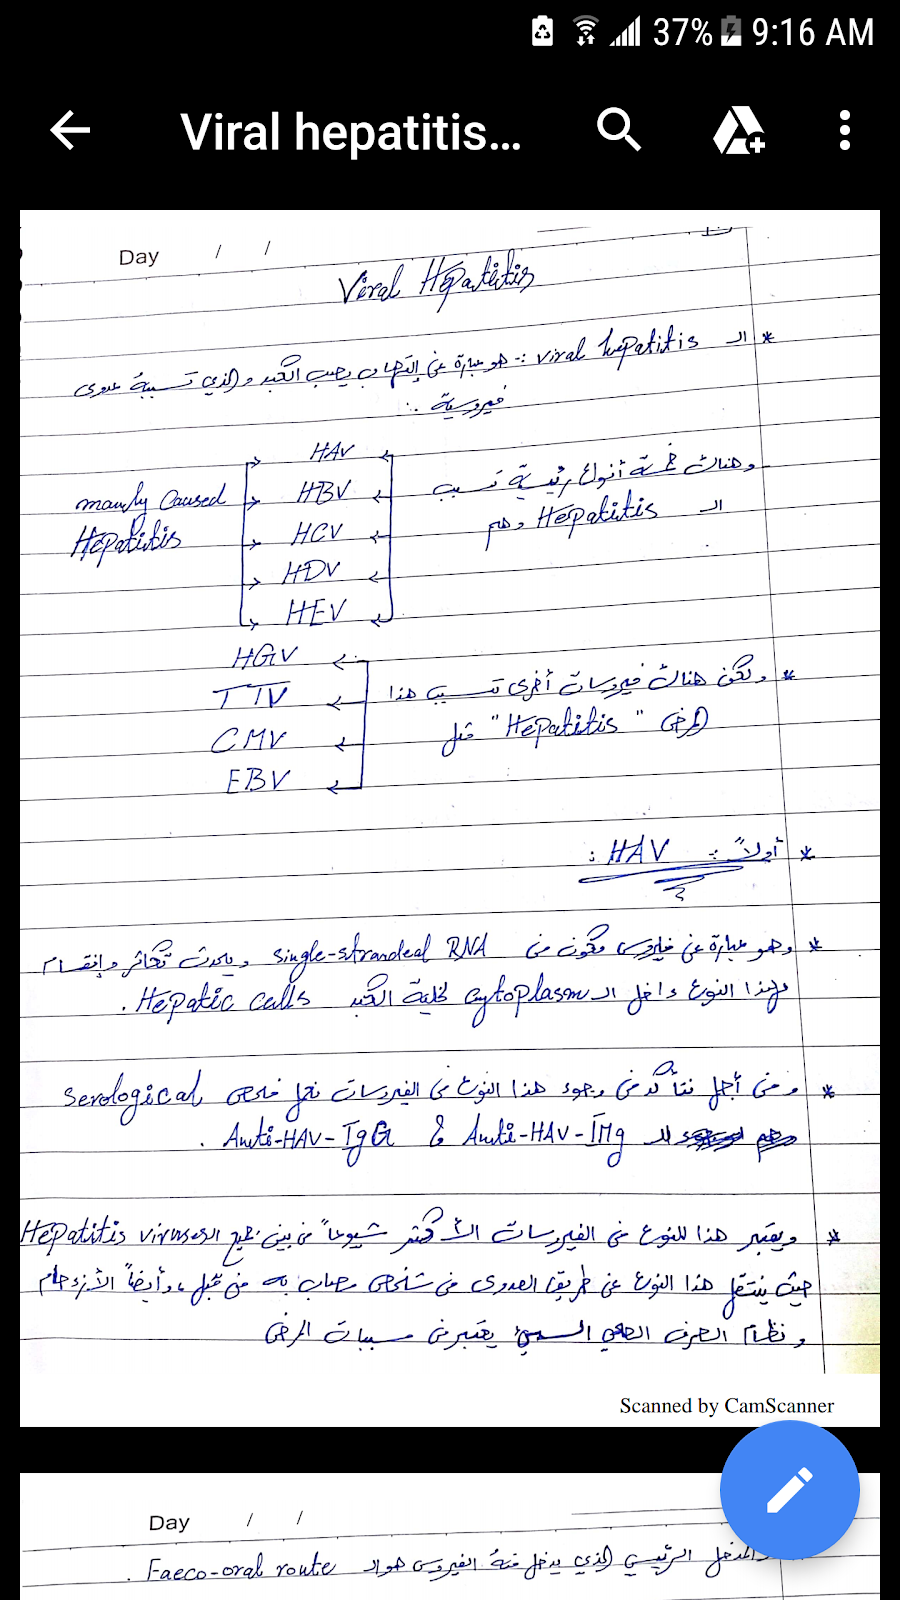 37% 9:16 AM
Viral hepatitis...
Day / /
Viral Hepatitis
* الـ viral hepatitis :- هو عبارة عن إلتهاب يصيب الكبد والذي تسببة عدوى
فيروسية .
وهناك خمسة أنواع رئيسية تسبب
الـ Hepatitis وهم
HAV
HBV
HCV
HDV
HEV
mainly Caused
Hepatitis
* ولكن هناك فيروسات أخرى تسبب هذا
المرض "Hepatitis" مثل
HGV
TTV
CMV
EBV
* أولاً : HAV :
* وهو عبارة عن فيروس مكون من single-stranded RNA ويحدث تكاثر وإنقسام
لهذا النوع داخل الـ cytoplasm لخلية الكبد Hepatic cells .
* ومن أجل نتأكد من وجود هذا النوع من الفيروسات نعمل فحص serological
وهم الـ Anti-HAV-IMg & Anti-HAV-IgG .
* ويعتبر هذا النوع من الفيروسات الأكثر شيوعاً من بين جميع الـ Hepatitis viruses
حيث ينتقل هذا النوع عن طريق العدوى من شخص مصاب به من قبل، وأيضاً الأزدحام
ونظام الصرف الصحي السيئ يعتبر من مسببات المرض
Scanned by CamScanner
Day / /
المدخل الرئيسي الذي يدخل منة الفيروس هو الـ Faeco-oral route .